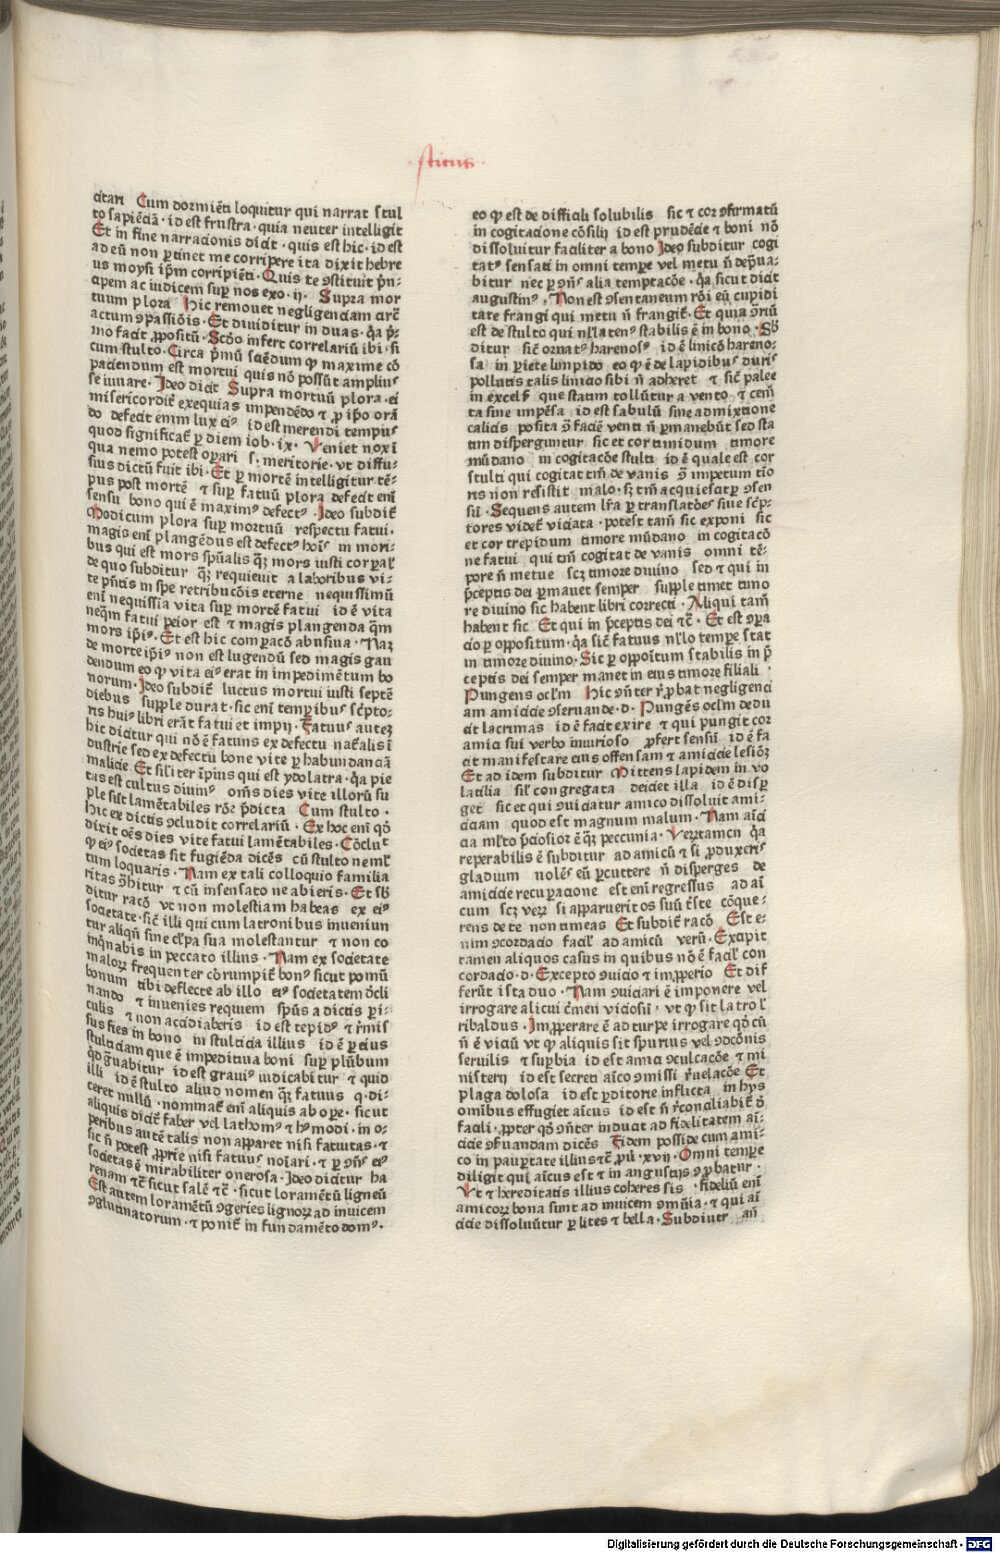 ·sticus·
citari Cum dormiēti loquitur qui narrat stul
to sapiēciā· id est frustra· quia neuter intelligit
Et in fine narracionis dicit· quis est hic· id est
ad eū non ꝑtinet me corripere ita dixit hebre
us moysi ip̄m corripiēti· Quis te ꝯstituit p̄n⸗
cipem ac iudicem suꝑ nos exo· ij· Supra mor
tuum plora Hic remouet negligenciam circ̄
actum ꝯpassiōis· Et diuiditur in duas· q̄a p̄⸗
mo facit ꝓpositū· Scd̄o infert correlariū ibi· si
cum stulto· Circa p̄mū sciēdum ꝙ maxime cō
paciendum est mortui quis nō possūt amplius
se iuuare· Ideo dicit Supra mortuū plora· ei
misericordit̄ exequias impendēdo ⁊ ꝓ ip̄o orā
do defecit enim lux eiꝰ id est merendi tempus
quod significat̄ ꝑ diem iob· ix· Veniet nox ī
qua nemo potest oꝑari s· meritorie· vt diffu⸗
sius dictū fuit ibi· Et ꝑ mortē intelligitur tē⸗
pus post mortē ⁊ suꝑ fatuū plora defecit enī
sensu bono qui ē maximꝰ defectꝰ· Ideo subdit̄
Modicum plora suꝑ mortuū respectu fatui·
magis enī plangēdus est defectꝰ hoīs in mori⸗
bus qui est mors spūalis qꝫ mors iusti corꝑal̄
de quo subditur qꝫ requieuit a laboribus vi⸗
te p̄ntis in spe retribucōis eterne nequissimū
enī nequissia vita suꝑ mortē fatui id ē vita
neq̄m fatui peior est ⁊ magis plangenda q̄m
mors ip̄iꝰ· Et est hic comꝑacō abusiua· Naꝫ
de morte ip̄iꝰ non est lugendū sed magis gau
dendum eo ꝙ vita eiꝰ erat in impedimētum bo
norum· Ideo subdit̄ luctus mortui iusti septē
diebus supple durat· sic enī temꝑibus sc̄pto⸗
ris huiꝰ libri erāt fatui et impij· Fatuus auteꝫ
hic dicitur qui nō ē fatuus ex defectu nat̄alis ī
dustrie sed ex defectu bone vite ꝑ habundanciā
malicie· Et sil̄iter īpius qui est ydolatra· q̄a pie
tas est cultus diuinꝰ om̄s dies vite illorū su
ple sūt lamētabiles rōe p̄dicta Cum stulto·
Hic ex dictis ꝯcludit correlariū· Ex hoc enī qd̄
dixit oēs dies vite fatui lamētabiles· Cōclut
ꝙ eiꝰ societas sit fugiēda dicēs cū stulto neml̄
tum loquaris· Nam ex tali colloquio familia
ritas ꝯhitur ⁊ cū insensato ne abieris· Et sb̄
ditur racō vt non molestiam habeas ex eiꝰ
societate· sic̄ illi qui cum latronibus inueniun
tur aliqn̄ sine cl̄pa sua molestantur ⁊ non co
inq̄nabis in peccato illius· Nam ex societate
maloꝝ frequenter cōrumpit̄ bonꝰ sicut pomū
bonum tibi deflecte ab illo eiꝰ societatem dc̄li
nando ⁊ inuenies requiem spūs a dictis ꝑi⸗
culis ⁊ non accidiaberis id est tepidꝰ ⁊ r̄mis
sus fies in bono in stulticia illius id ē ꝑ eius
stulticiam que ē impeditiua boni suꝑ plūbum
qd̄ g̊uabitur id est grauiꝰ iudicabitur ⁊ quid
illi id ē stulto aliud nomen qꝫ fatuus q· di⸗
ceret nullū· nominat̄ enī aliquis ab oꝑe· sicut
aliquis dicit̄ faber vel lathomꝰ ⁊ hꝰmodi· in o⸗
peribus autē talis non apparet nisi fatuitas· ⁊
sic n̄ potest ꝓprie nisi fatuus noīari· ⁊ ꝑ ꝯn̄s eiꝰ
societas ē mirabiliter onerosa· Ideo dicitur ha
renam ⁊c̄ sicut salē ⁊c̄· sicut loramētū ligneū
Est autem loramētū ꝯgeries lignoꝝ ad inuicem
ꝯglutinatorum· ⁊ ponit̄ in fundamēto domꝰ·
eo ꝙ est de difficili solubilis sic ⁊ cor ꝯfirmatū
in cogitacione cōsilij id est prudēcie ⁊ boni nō
dissoluitur faciliter a bono Ideo subditur cogi
tatꝰ sensati in omni temꝑe vel metu n̄ dep̄ua⸗
bitur nec ꝑ ꝯn̄s alia temptacōe· q̄a sicut dicit
augustinꝰ, Non est ꝯsentaneum rōi eū cupidi
tate frangi qui metu n̄ frangit̄· Et quia ꝯ̄riū
est de stulto qui nl̄latenꝰ stabilis ē in bono· Sb̄
ditur sic̄ ornatꝰ harenosꝰ id ē linicō hareno⸗
sa in ꝑiete limpido eo ꝙ ē de lapidibus duris
pollutis talis linicio sibi n̄ adheret ⁊ sic̄ palee
in excelsꝰ que statim tollūtur a vento ⁊ cem̄
ta sine impēsa id est sabulū sine admixtione
calicis posita ꝯ̄ faciē venti n̄ ꝑmanebūt sed sta
tim disperguntur sic et cor timidum timore
mūdano in cogitacōe stulti id ē quale est cor
stulti qui cogitat tm̄ de vanis ꝯ̄ impetum tio
ris non resistit malo· sꝫ tm̄ acquiescit ꝑ ꝯsen
sū· Sequens autem lr̄a ꝑ translatōes siue sc̄p⸗
tores videt̄ viciata· potest tam̄ sic exponi sic
et cor trepidum timore mūdano in cogitacō
ne fatui qui tm̄ cogitat de vanis omni tē⸗
pore n̄ metue scꝫ timore diuino sed ⁊ qui in
p̄ceptis dei ꝑmanet semper supple timet timo
re diuino sic habent libri correcti· Aliqui tam̄
habent sic Et qui in p̄ceptis dei ⁊c̄· Et est ꝯꝑa
cio ꝑ oppositum· q̄a sic̄ fatuus nl̄lo tempe stat
in timore diuino· Sic ꝑ oppoītum stabilis in p̄
ceptis dei semper manet in eius timore filiali
Pungens ocl̄m Hic ꝯn̄ter r̄ꝓbat negligenci
am amicicie ꝯseruande· d· Pungēs ocl̄m dedu
cit lacrimas id ē facit exire ⁊ qui pungit cor
amici sui verbo iniurioso ꝓfert sensū id ē fa
cit manifestare eius offensam ⁊ amicicie lesiōꝫ
Et ad idem subditur Mittens lapidem in vo
latilia sil̄ congregata deiciet illa id ē disꝑ
get sic et qui ꝯuiciatur amico dissoluit ami⸗
ciciam quod est magnum malum· Nam aīci
cia ml̄to p̄ciosior ē qꝫ peccunia· Veꝝtamen q̄a
reperabilis ē subditur ad amicū ⁊ si ꝓduxeris
gladium nolēs eū ꝑcuttere n̄ disperges de
amicicie recupacione est enī regressus ad aī
cum scꝫ veꝝ si apparuerit os suū tr̄ste cōque⸗
rens de te non timeas Et subdit̄ racō Est e⸗
nim ꝯcordacio facil̄ ad amicū verū· Excipit
tamen aliquos casus in quibus nō ē facil̄ con
cordacio· d· Excepto ꝯuicio ⁊ imꝓꝑio Et dif
ferūt ista duo· Nam ꝯuiciari ē imponere vel
irrogare alicui c̄men viciosū· vt ꝙ sit latro l̄
ribaldus· Imꝓꝑare ē ad turpe irrogare qd̄ cū
n̄ ē viciū vt ꝙ aliquis sit spurius vel ꝯdc̄ōnis
seruilis ⁊ suꝑbia id est amici ꝯculcacōe ⁊ mi
nisterij id est secreti aīco ꝯmissi r̄uelacōe Et
plaga dolosa id est ꝑditorie inflicta in hys
omībus effugiet aīcus id est n̄ r̄conciliabit̄ d̄
facili· ꝓpter qd̄ ꝯn̄ter inducit ad fidelitatem aī⸗
cicie ꝯs̄uandam dicēs Fidem posside cum ami⸗
co in pauꝑtate illius ⁊c̄ ꝓū· xvij· Omni temꝑe
diligit qui aīcus est ⁊ in angustijs ꝯꝓbatur·
Vt ⁊ hereditatis illius coheres sis· fideliū enī
amicoꝝ bona sunt ad inuicem ꝯmūia· ⁊ qui aī
cicie dissoluūtur ꝑ lites ⁊ bella· Subditur an̄
Digitalisierung gefördert durch die Deutsche Forschungsgemeinschaft - DFG